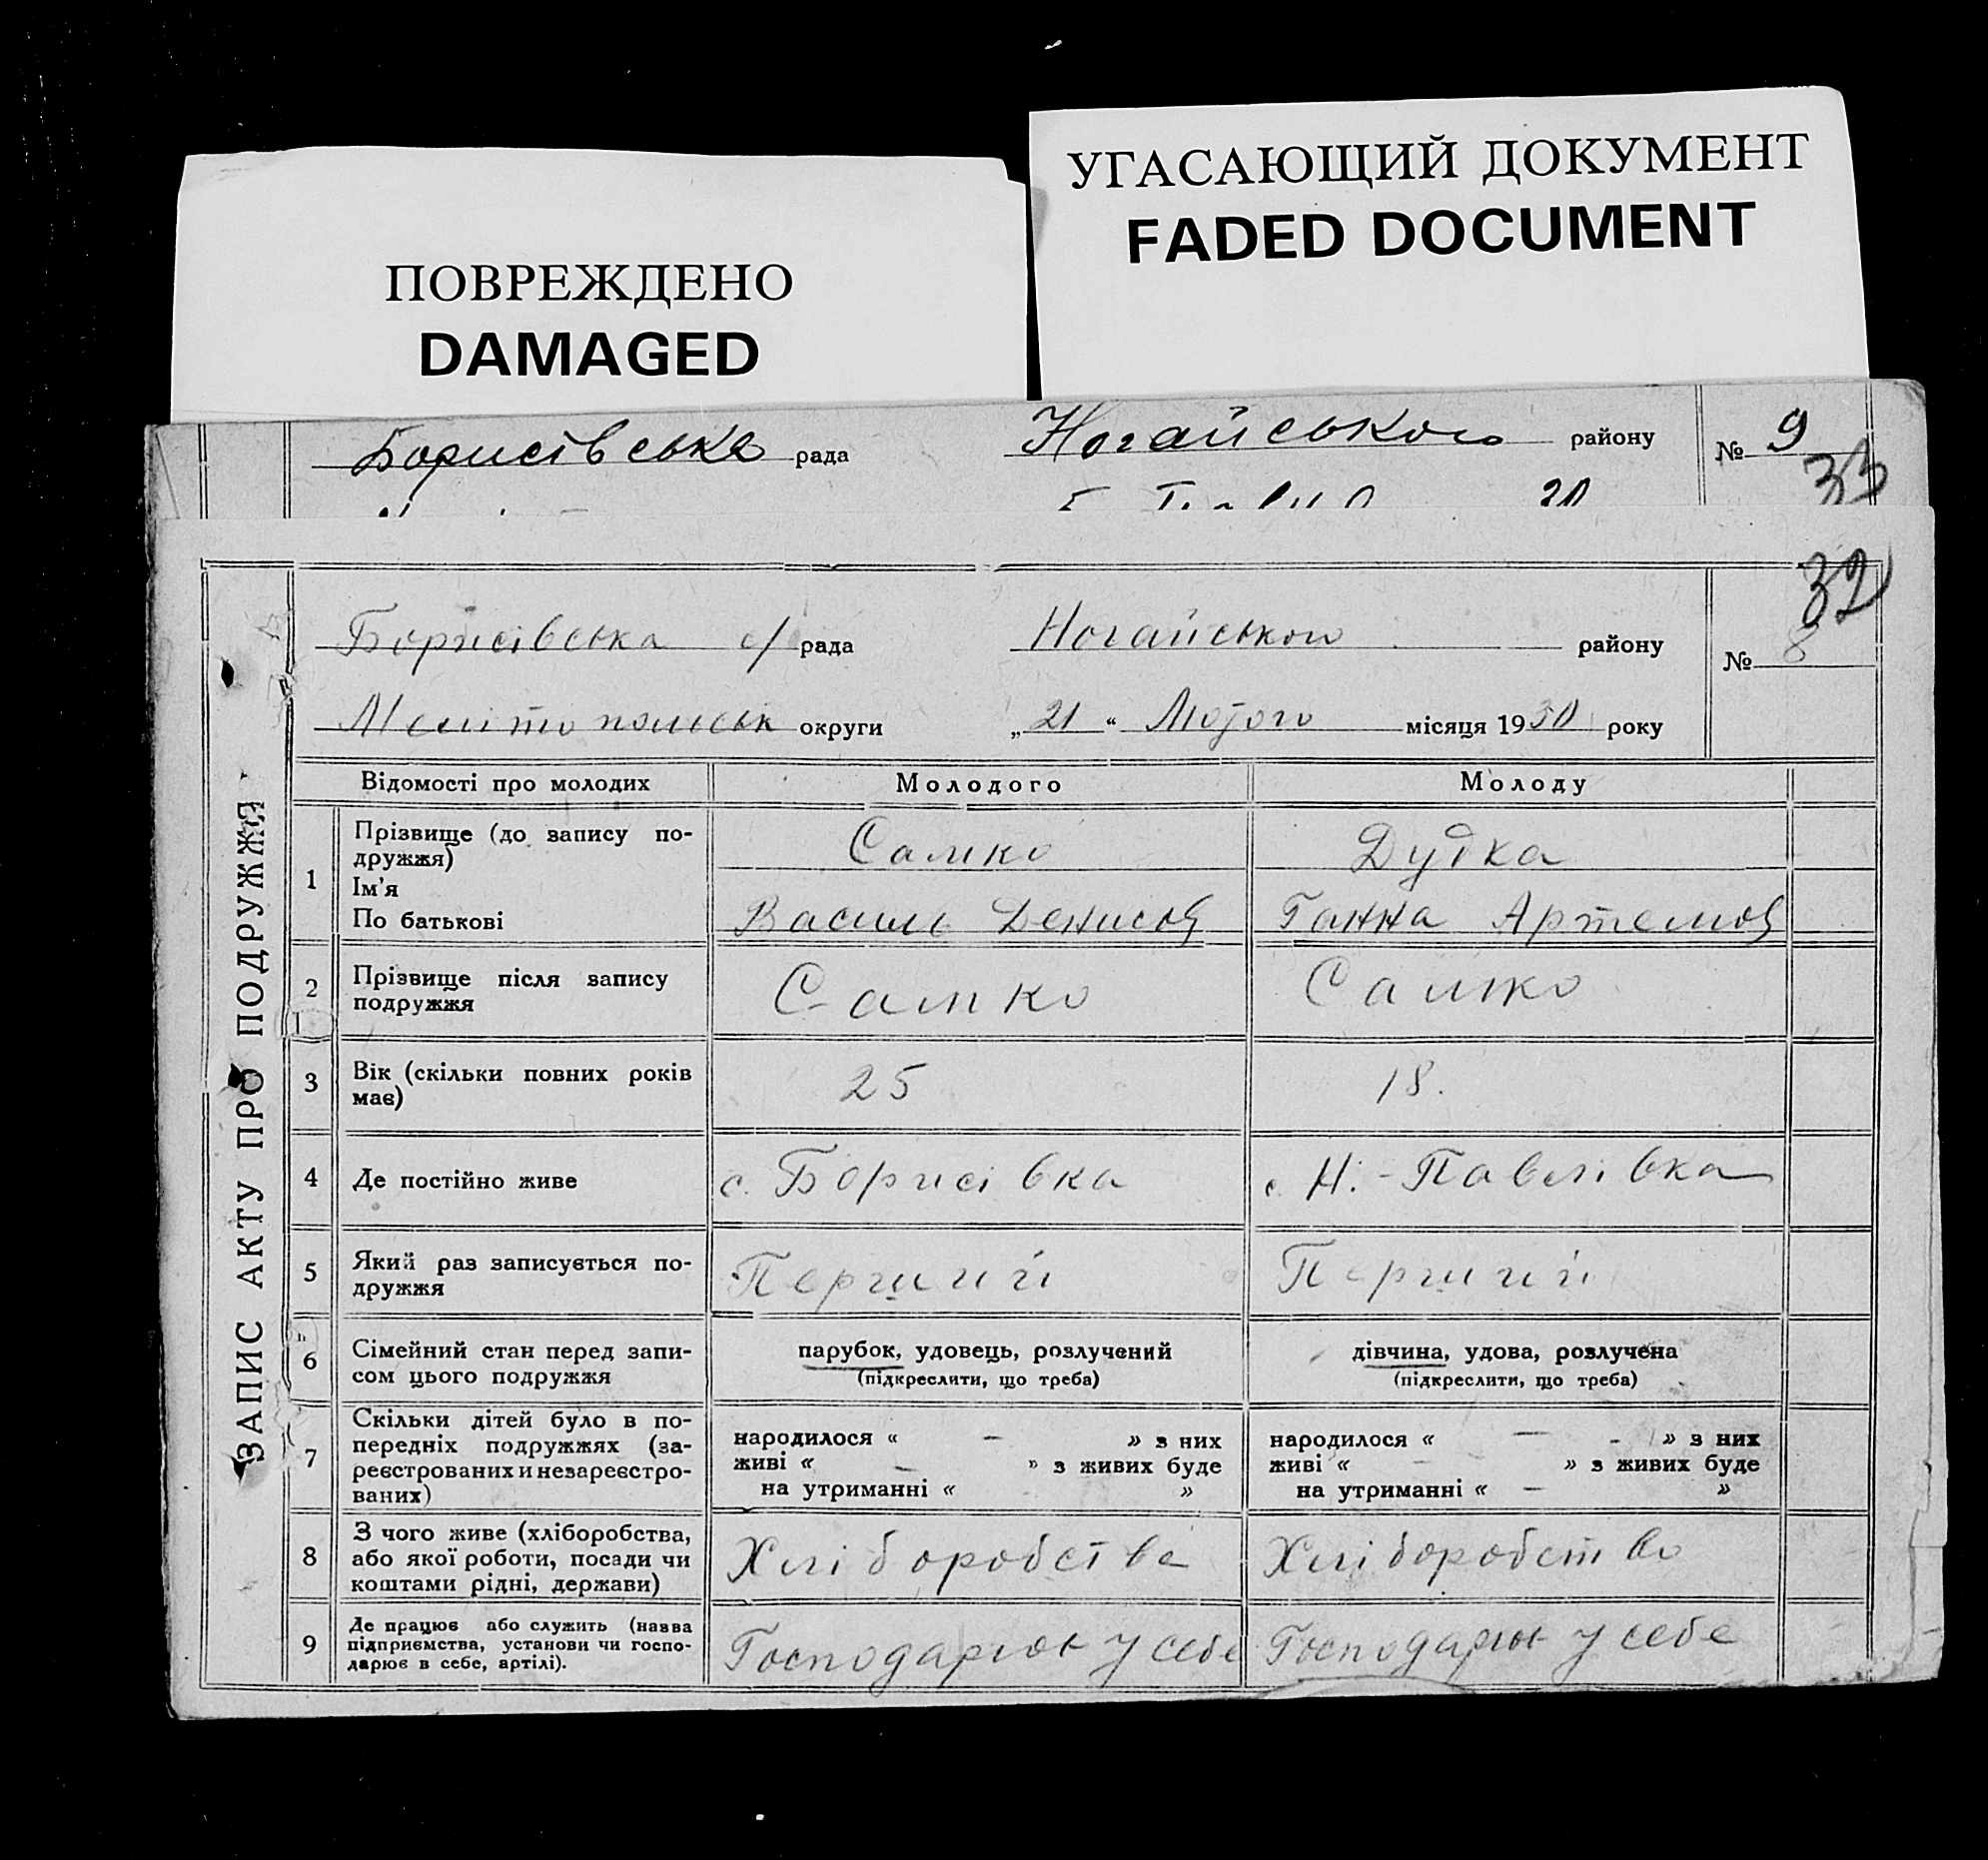 ПОВРЕЖДЕНО
DAMAGED
УГАСАЮЩИЙ ДОКУМЕНТ
FADED DOCUMENT
Борисівська рада Ногайського району № 9
33
32
Борисівська с/рада Ногайського району № 8
Мелітопольськ округи „21“ Лютого місяця 1930 року
ЗАПИС АКТУ ПРО ПОДРУЖЖЯ
Відомості про молодих Молодого Молоду
1 Прізвище (до запису по-
дружжя) Самко Дудка
Ім'я
По батькові Василь Денисов Ганна Артемов
2 Прізвище після запису
подружжя Самко Самко
3 Вік (скільки повних років
має) 25 18.
4 Де постійно живе с. Борисівка с. Н.-Павлівка
5 Який раз записується по-
дружжя Перший Перший
6 Сімейний стан перед запи-
сом цього подружжя парубок, удовець, розлучений дівчина, удова, розлучена
(підкреслити, що треба) (підкреслити, що треба)
7 Скільки дітей було в по-
передніх подружжях (за-
реєстрованих и незареєстро-
ваних)
народилося « — » з них народилося « — » з них
живі « — » з живих буде живі « — » з живих буде
на утриманні « » на утриманні « — »
8 З чого живе (хліборобства,
або якої роботи, посади чи
коштами рідні, держави) Хліборобства Хліборобство
9 Де працює або служить (назва
підприємства, установи чи госпо-
дарює в себе, артілі). Господарює у себе Господарює у себе